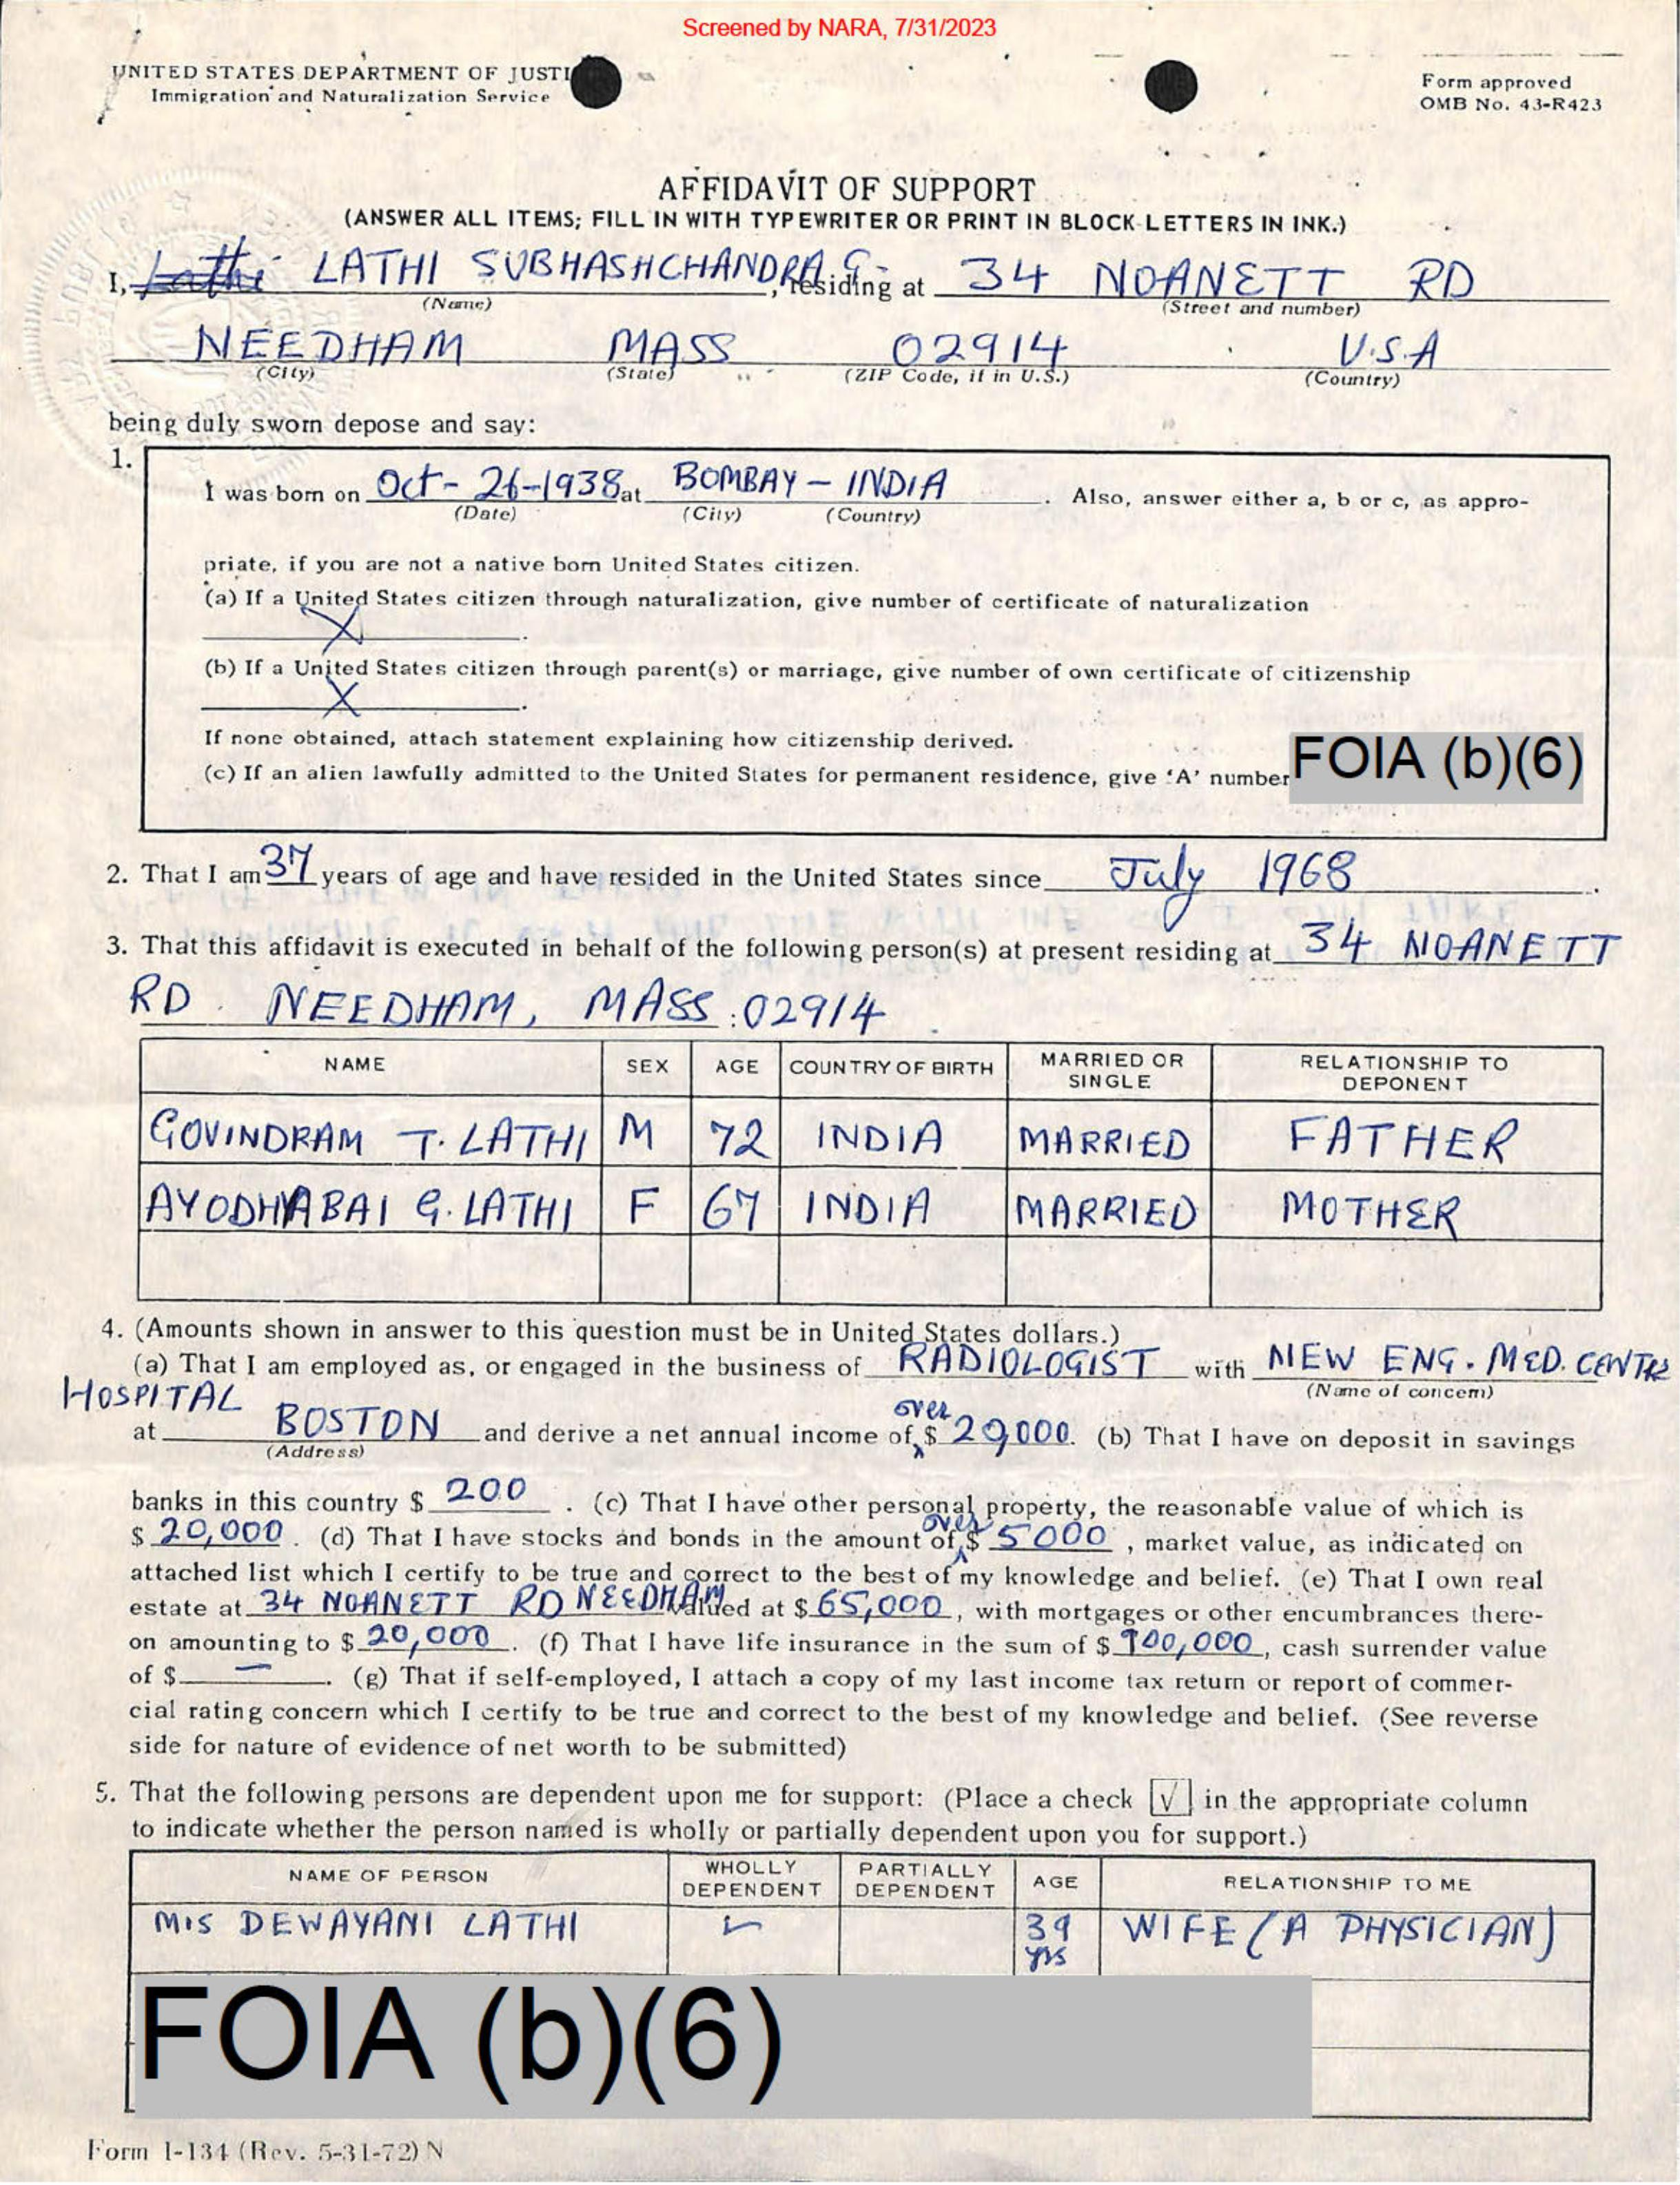 Screened by NARA, 7/31/2023
UNITED STATES DEPARTMENT OF JUSTI
Immigration and Naturalization Service
Form approved
OMB No. 43-R423
AFFIDAVIT OF SUPPORT
(ANSWER ALL ITEMS; FILL IN WITH TYPEWRITER OR PRINT IN BLOCK LETTERS IN INK.)
I, Lathi LATHI SUBHASHCHANDRA G., residing at 34 NOANETT RD
(Name) (Street and number)
NEEDHAM MASS 02914 U.S.A
(City) (State) (ZIP Code, if in U.S.) (Country)
being duly sworn depose and say:
1.
I was born on Oct- 26-1938 at BOMBAY - INDIA. Also, answer either a, b or c, as appro-
(Date) (City) (Country)
priate, if you are not a native born United States citizen.
(a) If a United States citizen through naturalization, give number of certificate of naturalization
X.
(b) If a United States citizen through parent(s) or marriage, give number of own certificate of citizenship
X.
If none obtained, attach statement explaining how citizenship derived.
(c) If an alien lawfully admitted to the United States for permanent residence, give 'A' number FOIA (b)(6)
2. That I am 37 years of age and have resided in the United States since July 1968.
3. That this affidavit is executed in behalf of the following person(s) at present residing at 34 NOANETT
RD. NEEDHAM, MASS. 02914
NAME SEX AGE COUNTRY OF BIRTH MARRIED OR SINGLE RELATIONSHIP TO DEPONENT
GOVINDRAM T. LATHI M 72 INDIA MARRIED FATHER
AYODHYABAI G. LATHI F 67 INDIA MARRIED MOTHER
4. (Amounts shown in answer to this question must be in United States dollars.)
(a) That I am employed as, or engaged in the business of RADIOLOGIST with NEW ENG. MED. CENTRE
(Name of concern)
HOSPITAL
at BOSTON and derive a net annual income of over $ 29,000. (b) That I have on deposit in savings
(Address)
banks in this country $ 200. (c) That I have other personal property, the reasonable value of which is
$ 20,000. (d) That I have stocks and bonds in the amount of over $ 5000, market value, as indicated on
attached list which I certify to be true and correct to the best of my knowledge and belief. (e) That I own real
estate at 34 NOANETT RD NEEDHAM valued at $ 65,000, with mortgages or other encumbrances there-
on amounting to $ 20,000. (f) That I have life insurance in the sum of $ 100,000, cash surrender value
of $ —. (g) That if self-employed, I attach a copy of my last income tax return or report of commer-
cial rating concern which I certify to be true and correct to the best of my knowledge and belief. (See reverse
side for nature of evidence of net worth to be submitted)
5. That the following persons are dependent upon me for support: (Place a check √ in the appropriate column
to indicate whether the person named is wholly or partially dependent upon you for support.)
NAME OF PERSON WHOLLY DEPENDENT PARTIALLY DEPENDENT AGE RELATIONSHIP TO ME
MIS DEWAYANI LATHI ✓ 39 yrs WIFE (A PHYSICIAN)
FOIA (b)(6)
Form I-134 (Rev. 5-31-72) N